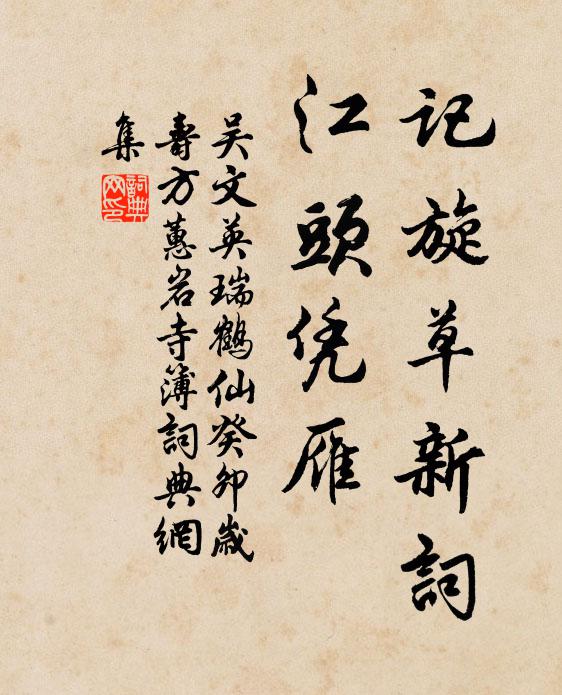 记旋草新詞
江頭凭雁
吴文英瑞鶴仙癸卯歳
壽方蕙岩寺簿詞典網
集
詞典
网印